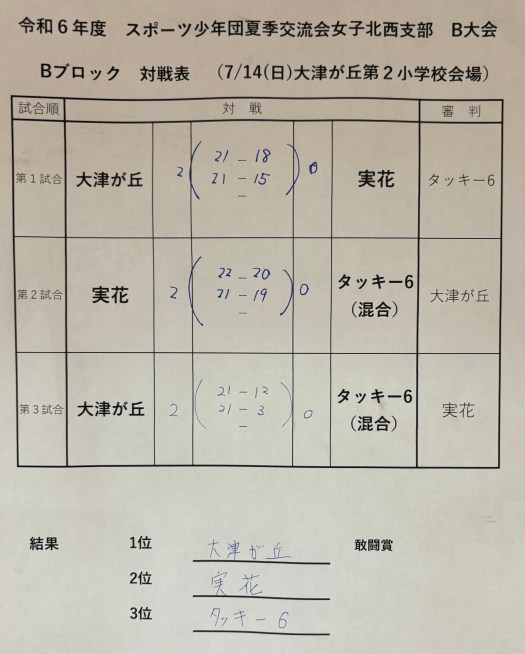 令和６年度　スポーツ少年団夏季交流会女子北西支部　B大会
Bブロック　対戦表　（7/14(日)大津が丘第２小学校会場）
試合順　対　戦　審　判
第１試合　大津が丘　2　21 − 18　0　実花　タッキー6
21 − 15
−
第２試合　実花　2　22 − 20　0　タッキー6　大津が丘
21 − 19　（混合）
−
第３試合　大津が丘　2　21 − 12　0　タッキー6　実花
21 − 3　（混合）
−
結果　1位　大津が丘　敢闘賞
2位　実花
3位　タッキー6